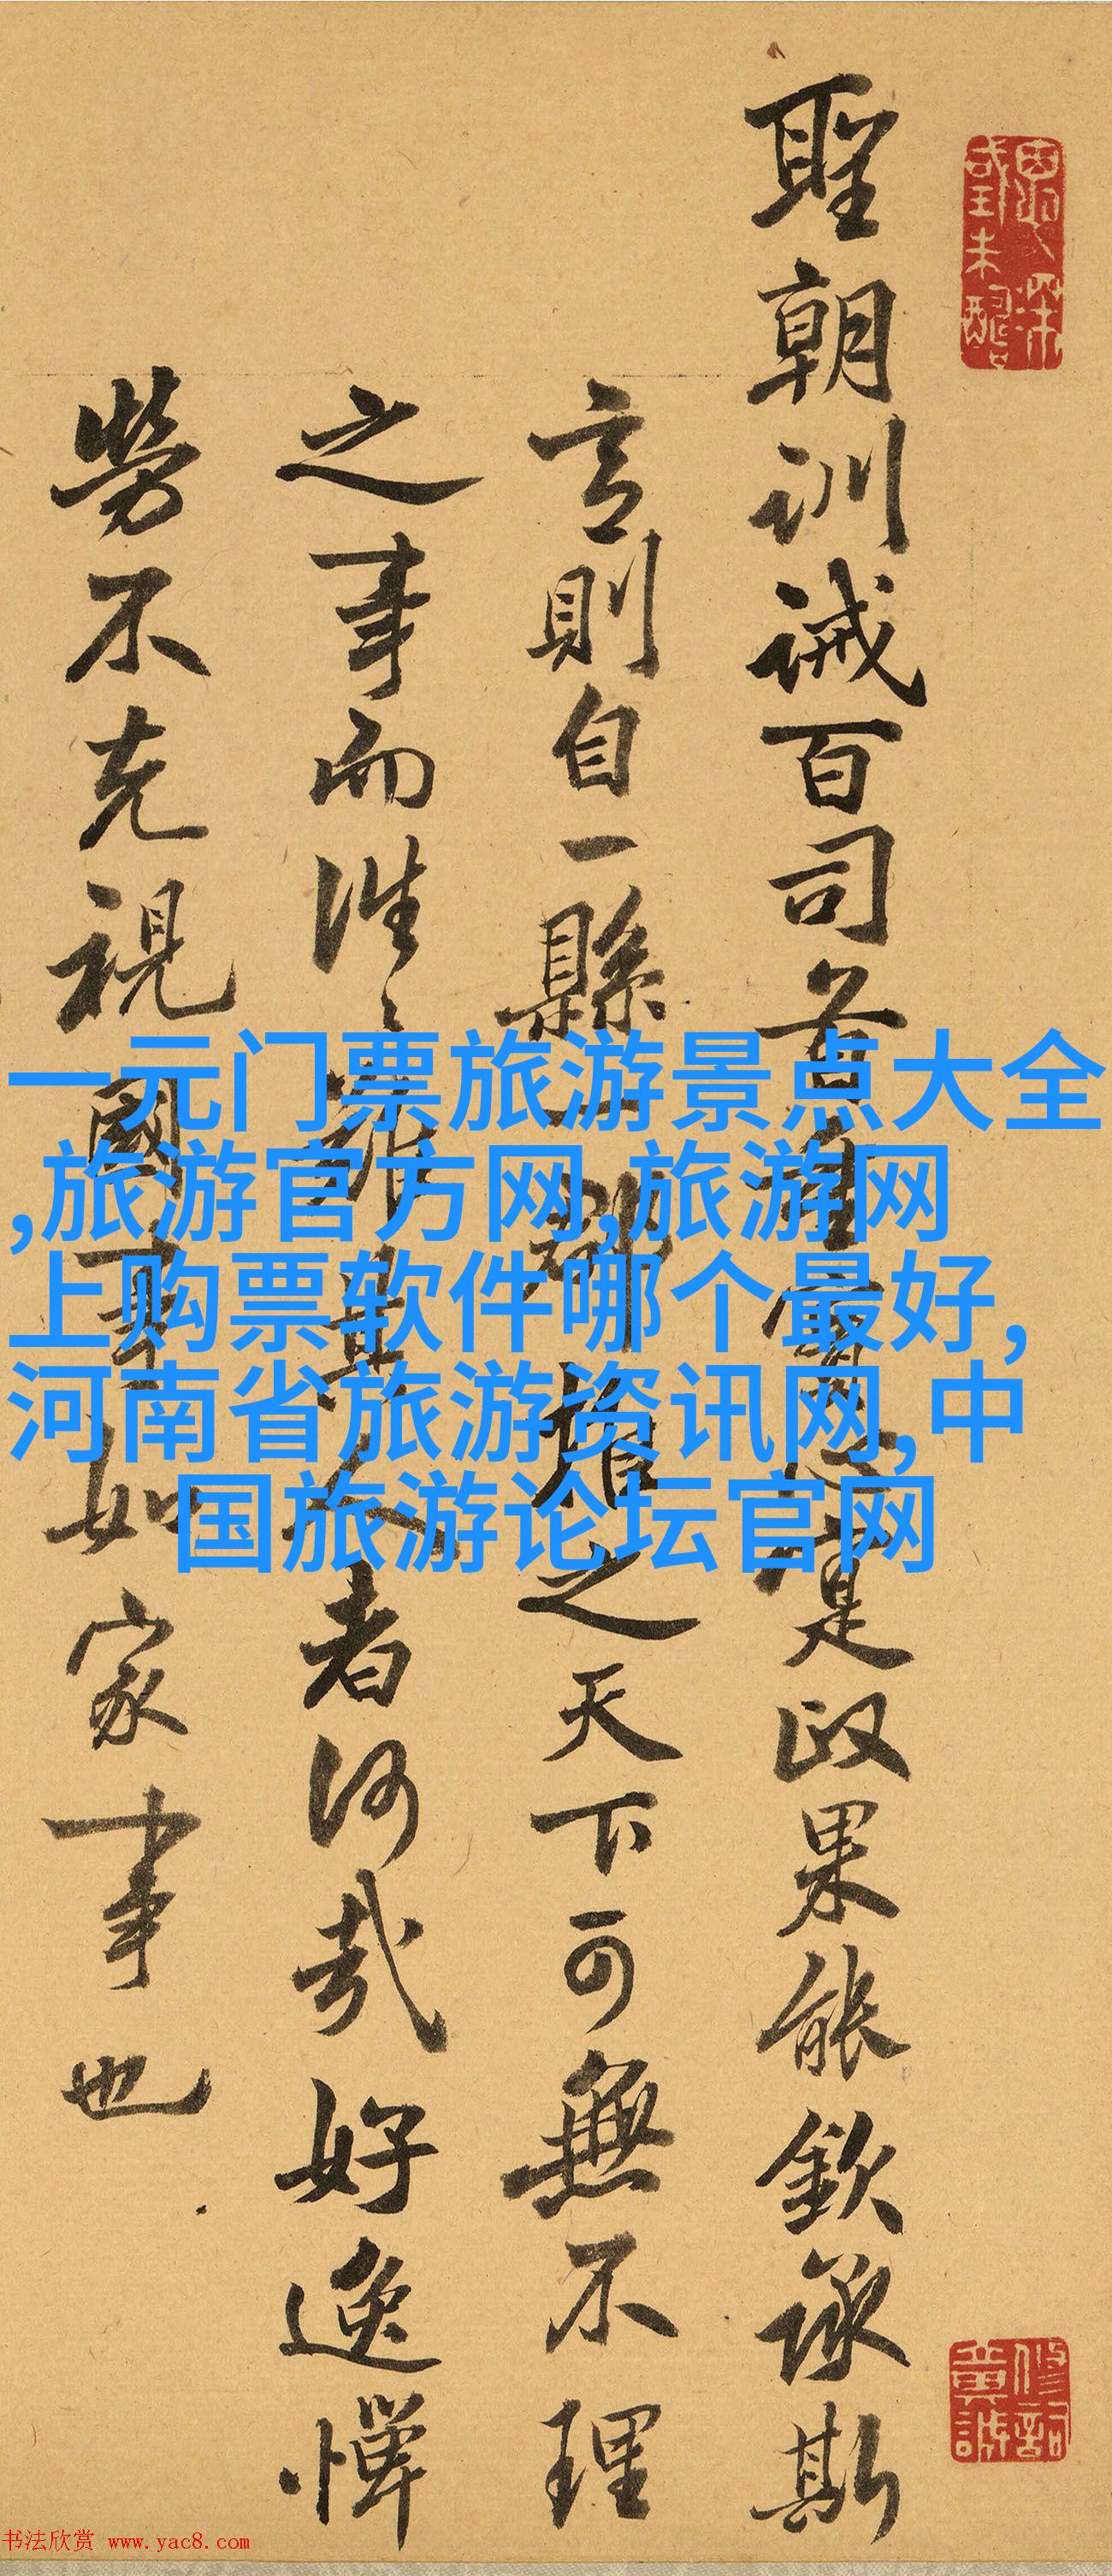 聖朝訓誡百司首重實心寔政果能欽承斯
言則自一縣一郡推之天下可無不理
之事而往〻難其人者何哉好逸憚
勞不克視國事如家事也
一元门票旅游景点大全
,旅游官方网,旅游网
上购票软件哪个最好,
河南省旅游资讯网,中
国旅游论坛官网
书法欣赏 www.yac8.com